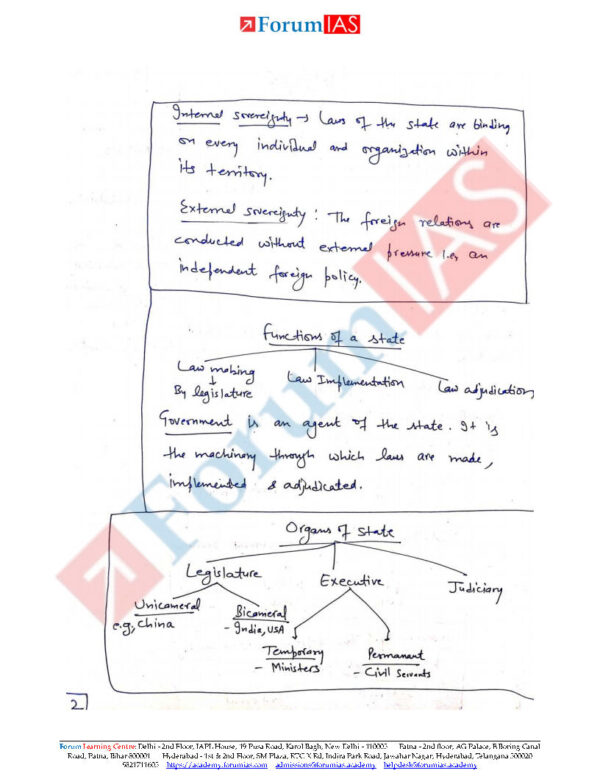 ForumIAS
Internal sovereignty → Laws of the state are binding
on every individual and organization within
its territory.
External sovereignty : The foreign relations are
conducted without external pressure i.e, an
independent foreign policy.
Functions of a state
Law making
↓
By legislature
Law Implementation
Law adjudication
Government is an agent of the state. It is
the machinery through which laws are made,
implemented & adjudicated.
Organs of state
Legislature
Executive
Judiciary
Unicameral
e.g, China
Bicameral
- India, USA
Temporary
- Ministers
Permanant
- Civil Servants
2
ForumIAS
Forum Learning Centre: Delhi - 2nd Floor, IAPL House, 19 Pusa Road, Karol Bagh, New Delhi - 110005 Patna - 2nd floor, AG Palace, E Boring Canal
Road, Patna, Bihar 800001 Hyderabad - 1st & 2nd Floor, SM Plaza, RTC X Rd, Indira Park Road, Jawahar Nagar, Hyderabad, Telangana 500020
9821711605 https://academy.forumias.com admissions@forumias.academy helpdesk@forumias.academy